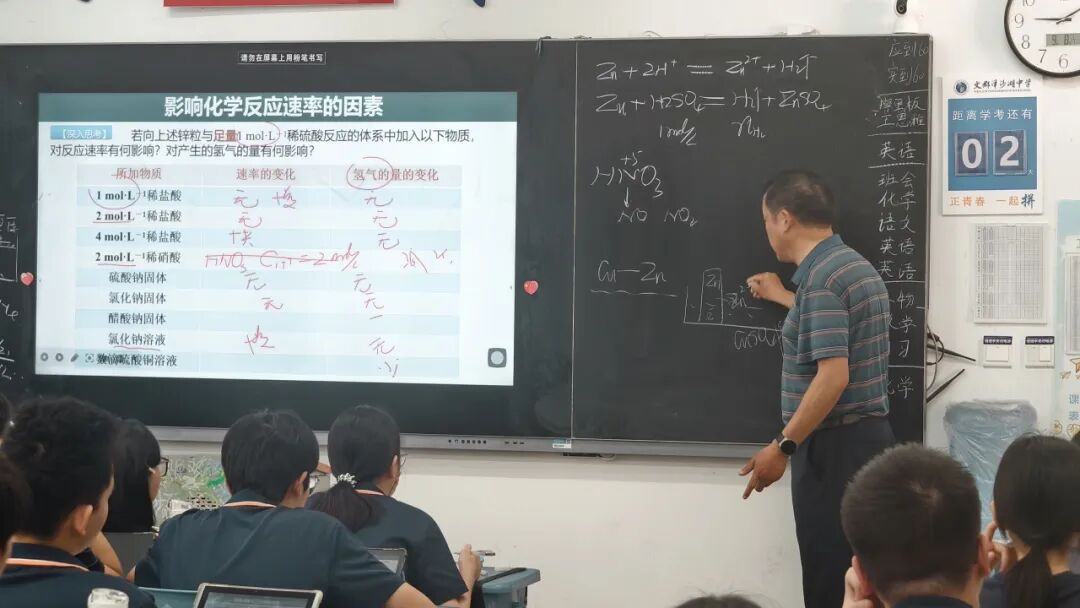 请勿在屏幕上用粉笔书写
影响化学反应速率的因素
【深入思考】 若向上述锌粒与足量1 mol·L⁻¹稀硫酸反应的体系中加入以下物质，
对反应速率有何影响？对产生的氢气的量有何影响？
所加物质 速率的变化 氢气的量的变化
1 mol·L⁻¹稀盐酸 无 无
2 mol·L⁻¹稀盐酸 无 无
4 mol·L⁻¹稀盐酸 无
2 mol·L⁻¹稀硝酸 HNO₃
硫酸钠固体 无 无
氯化钠固体 无 无
醋酸钠固体
氯化钠溶液 无
数滴硫酸铜溶液
Zn + 2H⁺ = Zn²⁺ + H₂↑
Zn + H₂SO₄ = H₂↑ + ZnSO₄
1mol/L nH₂
+5
HNO₃
↓
NO NO₂
Cu—Zn
Zn
Zn²⁺
应到60
实到60
英语
班会
化学
语文
英语
英语
物
学
习
化学
距离学考还有
02
天
正青春 一起拼
课
表